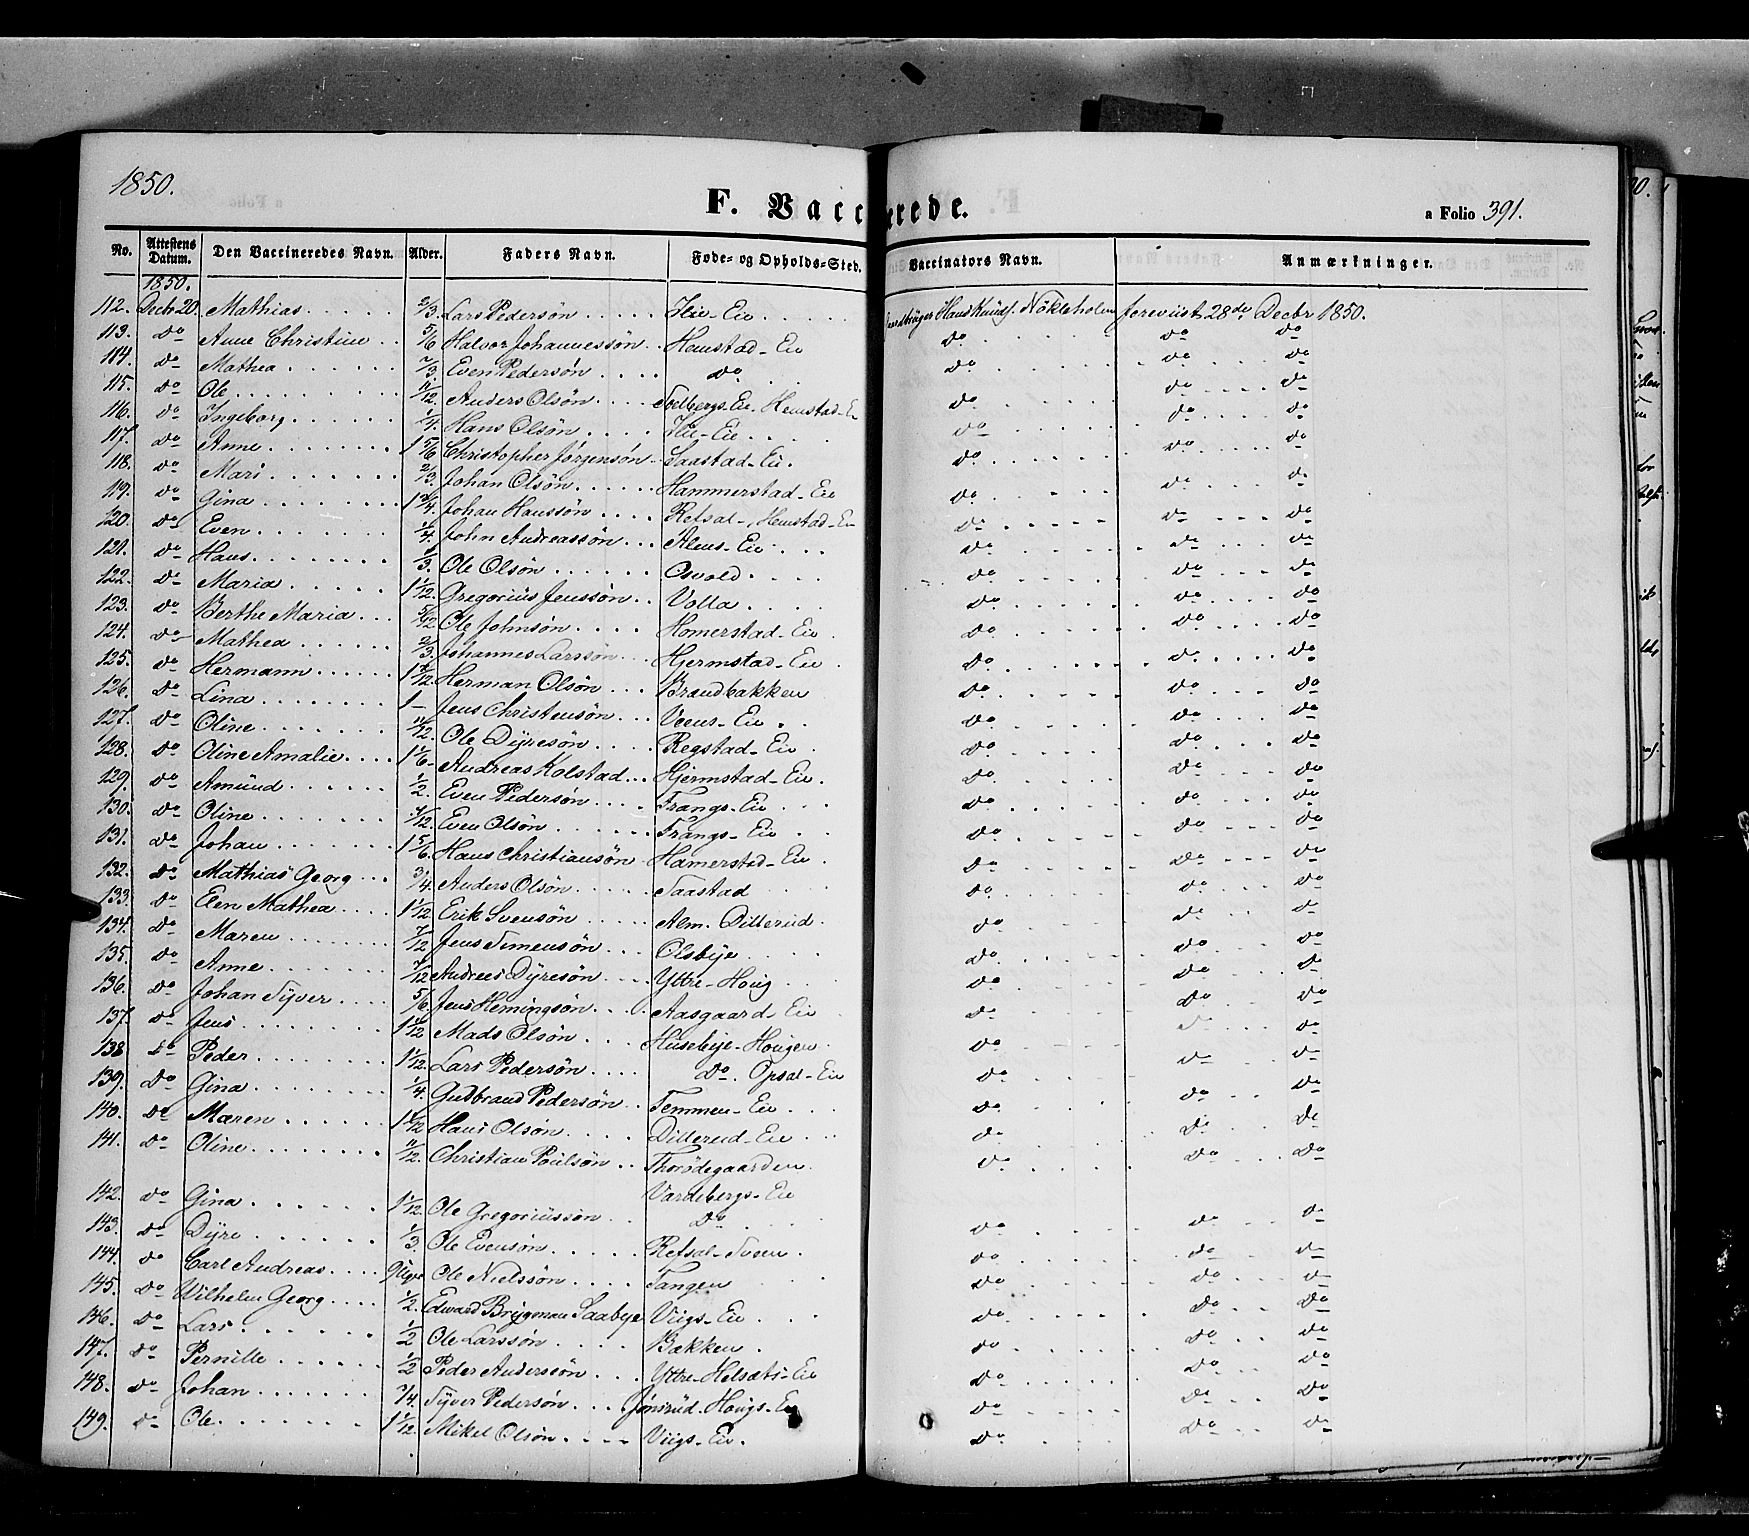 1850.
F. Vaccinerede.
a Folio 391.
No. Attestens Datum. Den Vaccineredes Navn. Alder. Faders Navn. Føde- og Opholds-Sted. Vaccinators Navn. Anmærkninger.
1850.
112. Decbr 20. Mathias 2/3 Lars Pedersøn Hu-Eie Hans Knuds. Nökleholm foreviist 28de Decbr 1850.
113. do Anne Christine 5/6 Halvor Johannessøn Hemstad-Eie do do do
114. do Mathea 2/3. Even Pedersøn do do do do
115. do Ole 11/12 Anders Olsøn Hemstad-E do do do
116. do Ingeborg Hans Olsøn Hu-Eie do do do
117. do Anne 1 5/6 Christopher Jørgensøn Saastad-Eie. do do do
118. do Mari 2/3. Johan Olsøn Hammerstad-Eie do do do
119. do Gina Johan Hanssøn Refsal-, Hemstad-E do do do
120. do Even 1/4. John Andreassøn Alens-Eie do do do
121. do Hans 1/3. Ole Olsøn Osvold do do do
122. do Maria 1 1/12. Gregorius Jenssøn Volla do do do
123. do Berthe Maria 5/12 Ole Johnsøn Homerstad-Eie do do do
124. do Mathea 2/3. Johannes Larssøn Hjermstad-Eie do do do
125. do Hermann Herman Olsøn Brandbakken do do do
126. do Lina 1 – Jens Christensøn Veens-Eie do do do
127. do Oline 11/12. Ole Dÿresøn Regstad-Eie do do do
128. do Oline Amalie 1 1/6. Andreas Kolstad Hjermstad-Eie do do do
129. do Amund 1/2. Even Pedersøn Frangs-Eie do do do
130. do Oline Even Olsøn Frangs-Eie do do do
131. do Johan 1 5/6. Hans Christiansøn Hamerstad-Eie do do do
132. do Mathias Georg 3/4 Anders Olsøn Saastad do do do
133. do Elen Mathea 1 1/12 Erik Svensøn Alm. Dillerud do do do
134. do Maren 7/12 Jens Simensøn Olsbÿe do do do
135. do Anne Andreas Dÿresøn Yttre-Houg do do do
136. do Johan Syver 5/6. Jens Hemingsøn Aasgaard-Eie do do do
137. do Jens 1 1/12 Mads Olsøn Husebÿe-Hougen do do do
138. do Peder 1 1/12. Lars Pedersøn do. Opsal-Eie do do do
139. do Gina 1/4. Gudbrand Pedersøn Temmen-Eie do do do
140. do Maren Hans Olsøn Dillerud-Eie do do do
141. do Oline 11/12. Christian Poulsøn Thorødegaarden do do do
142. do Gina 1 1/12. Ole Gregoriussøn Vardebergs-Eie do do do
143. do Dÿre 1/3 Ole Evensøn do do do do
144. do Carl Andreas 9 Uger Ole Nielssøn Refsal-Sveen do do do
145. do Wilhelm Georg 1/2. Edward Brÿgman Saabÿe Tangen do do do
146. do Lars 1/2 Ole Larssøn Viigs-Eie do do do
147. do Pernille 1/2 Peder Anderssøn Bakken do do do
148. do Johan 3/4. Sÿver Pedersøn Yttre-Helsæts-Eie do do do
149. do Ole 1 1/12 Mikel Olsøn Jønsrud-Hougs-Eie do do do
Viigs-Eie.